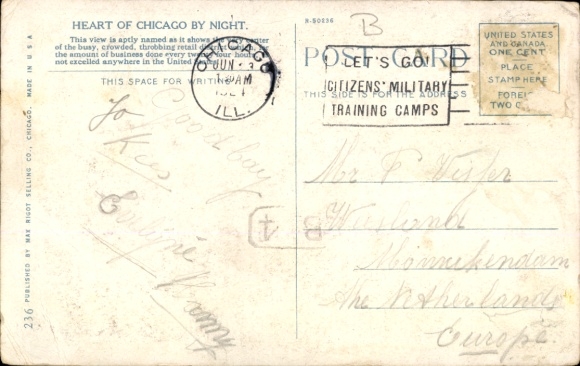 HEART OF CHICAGO BY NIGHT.
This view is aptly named as it shows the center
of the busy, crowded, throbbing retail district
the amount of business done every twenty four hours
not excelled anywhere in the United
THIS SPACE FOR WRITING
CHICAGO
JUN
ILL.
B-50236
B
POST CARD
LET'S GO!
CITIZENS' MILITARY
TRAINING CAMPS
THIS SIDE IS FOR THE ADDRESS
UNITED STATES
AND CANADA
ONE CENT
PLACE
STAMP HERE
FOREI
TWO C
Good bay
to
Mr F Visser
Monnikendam
the Netherlands
Europe.
B 4
236 PUBLISHED BY MAX RIGOT SELLING CO., CHICAGO. MADE IN U S A